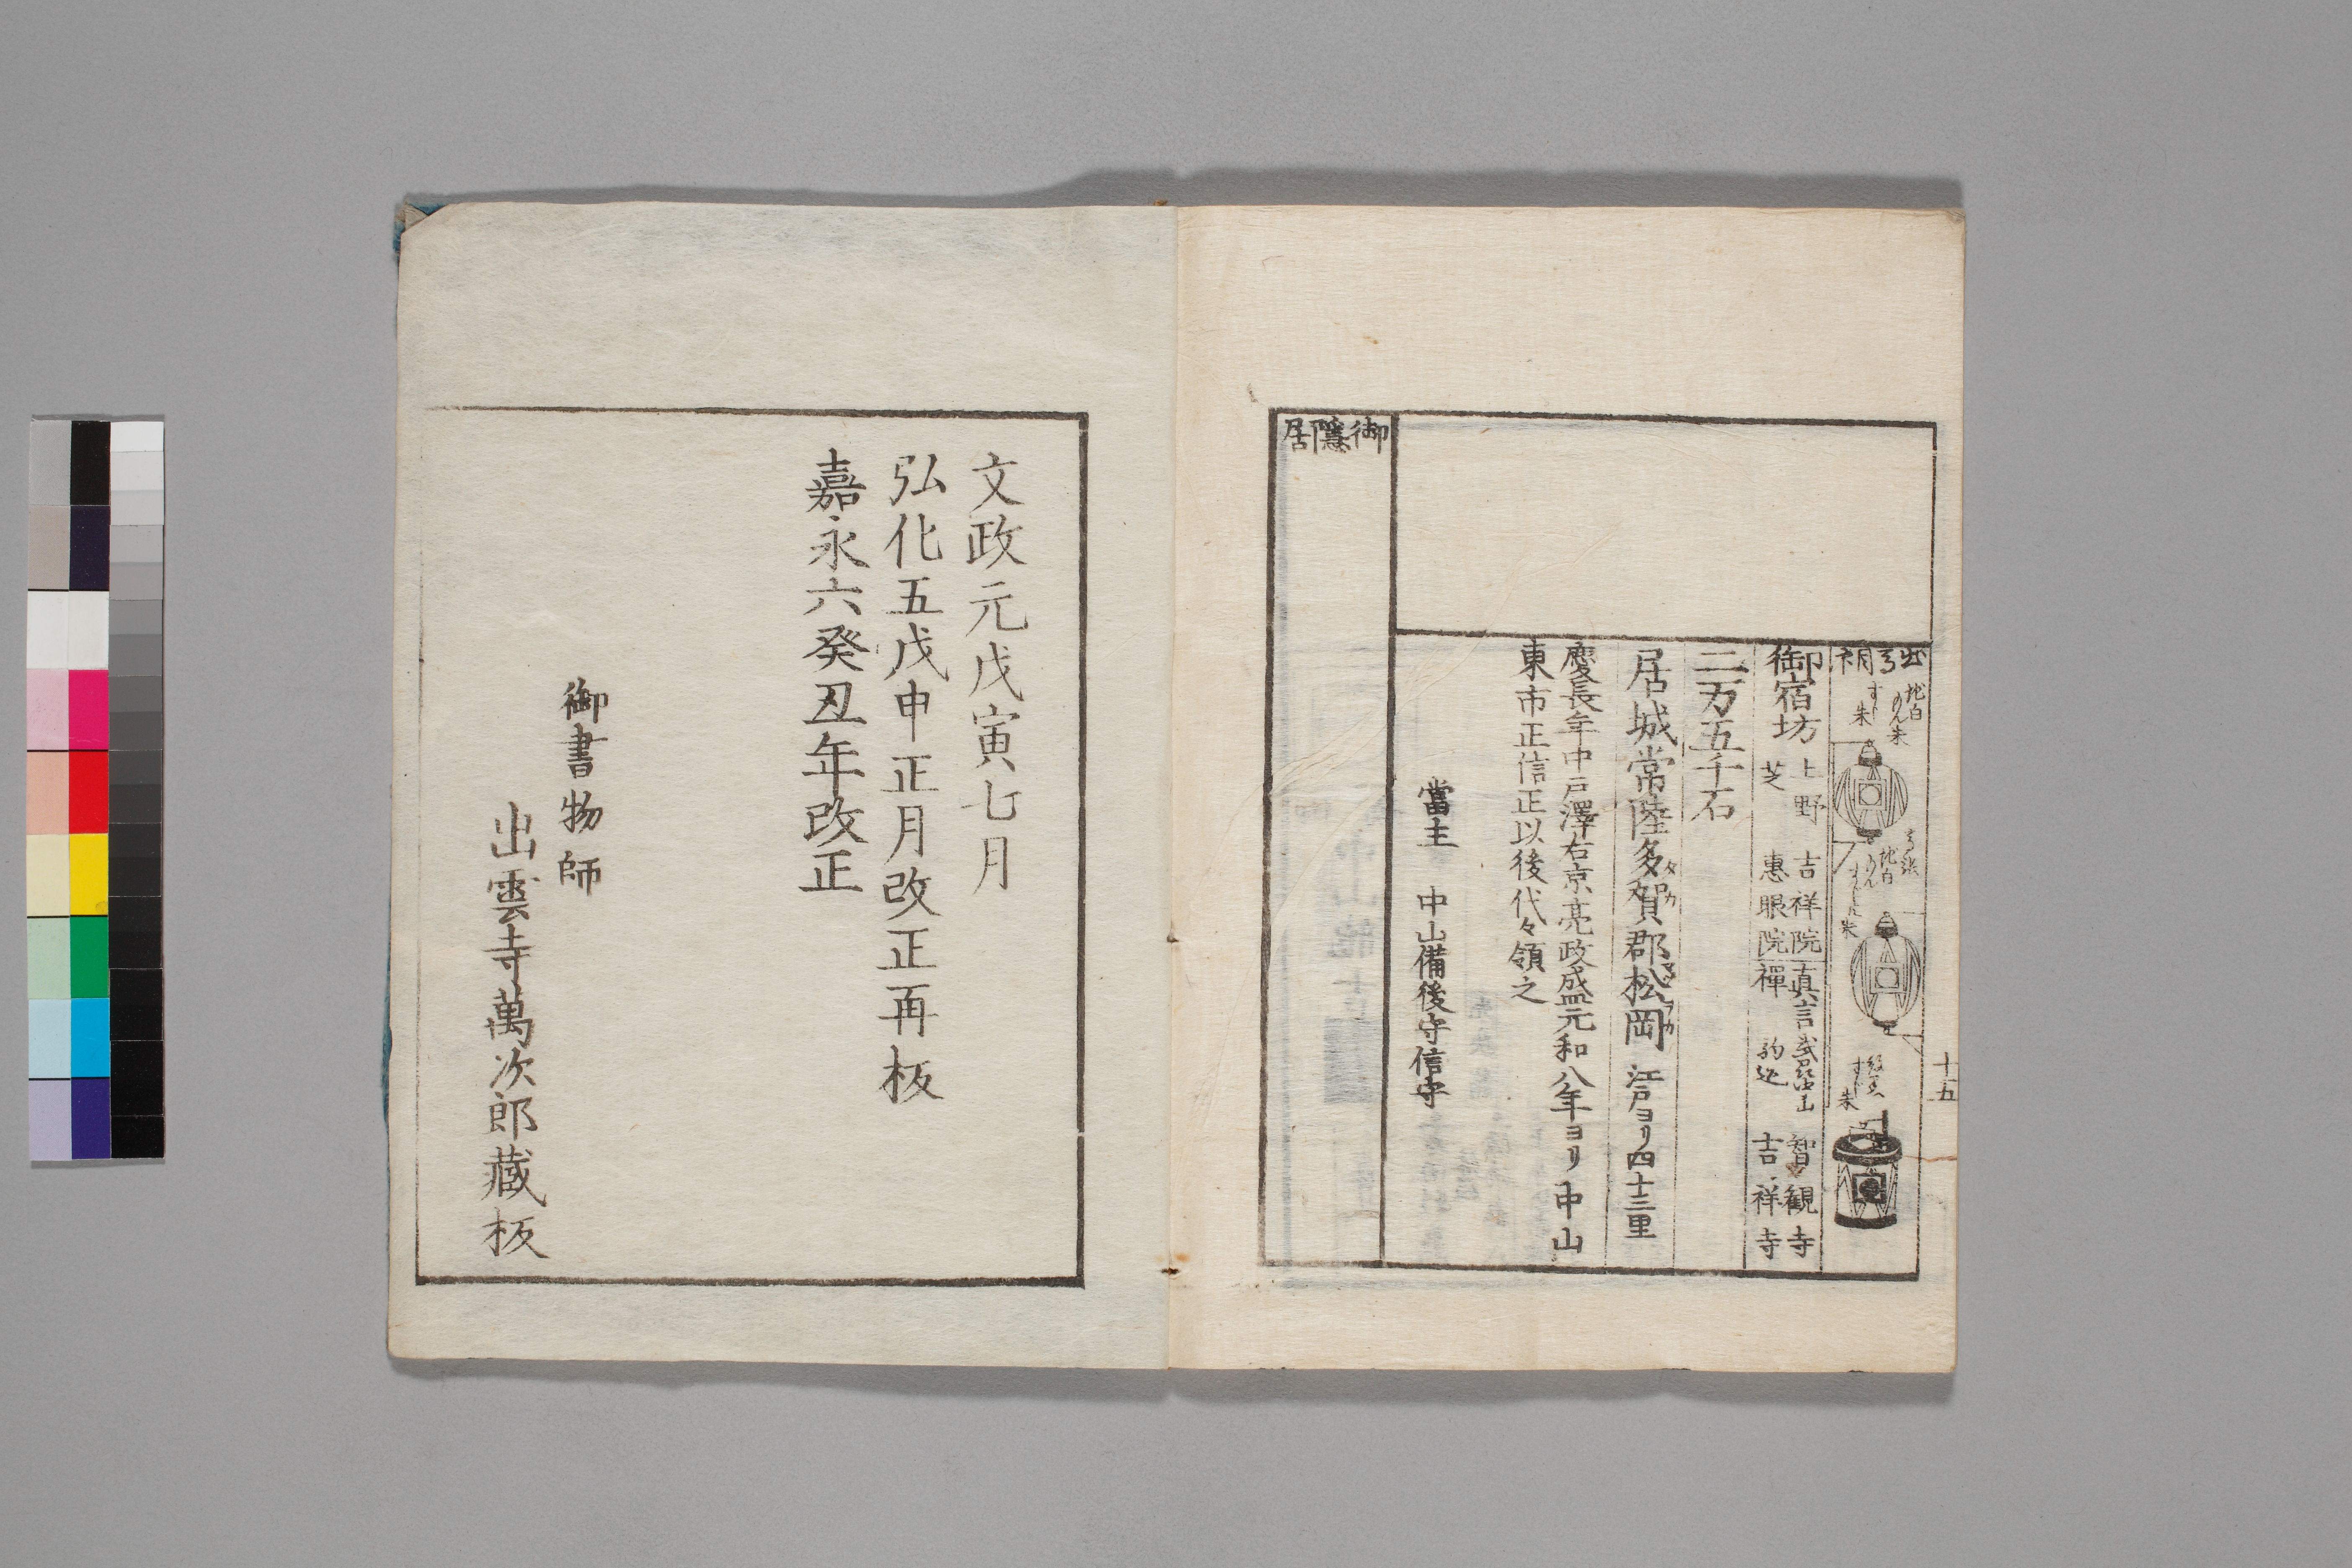 十五
地白
朱
朱
朱
朱
御宿坊
上野 吉祥院
芝 惠眼院
真言 智観寺
禪 駒込 吉祥寺
二万五千石
居城常陸多賀郡松岡 江戸ヨリ四十三里
慶長年中戸澤右京亮政盛元和八年ヨリ中山
東市正信正以後代々領之
當主 中山備後守信守
御隱居
文政元戊寅七月
弘化五戊申正月改正再板
嘉永六癸丑年改正
御書物師
出雲寺萬次郎藏板